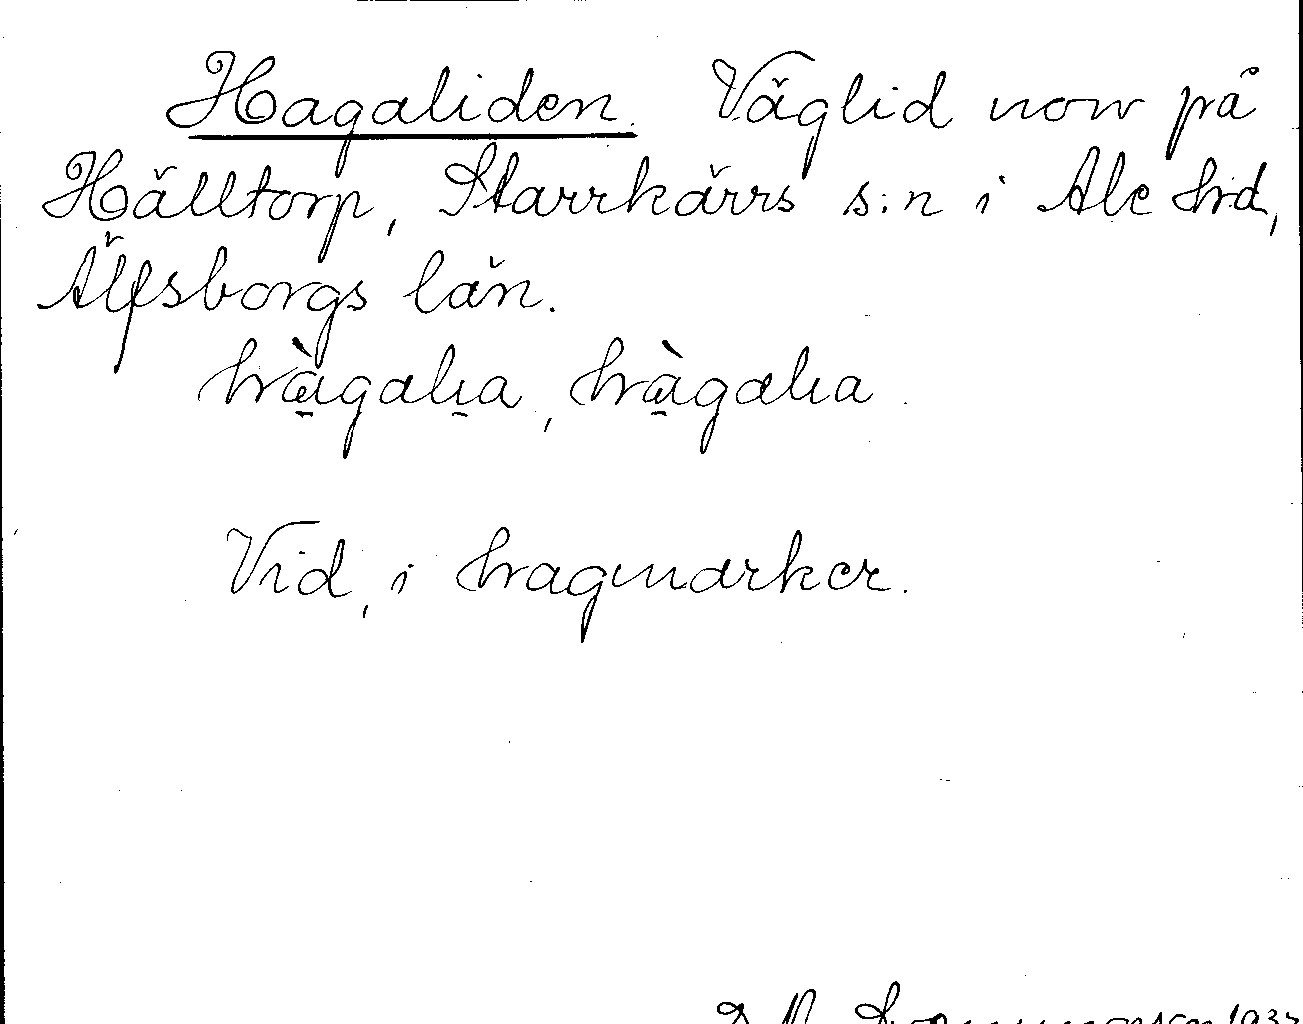 Hagaliden. Väglid norr på
Hälltorp, Starrkärrs s:n i Ale hrd,
Älfsborgs län.
hàgalia, hàgalia.
Vid, i hagmarker.